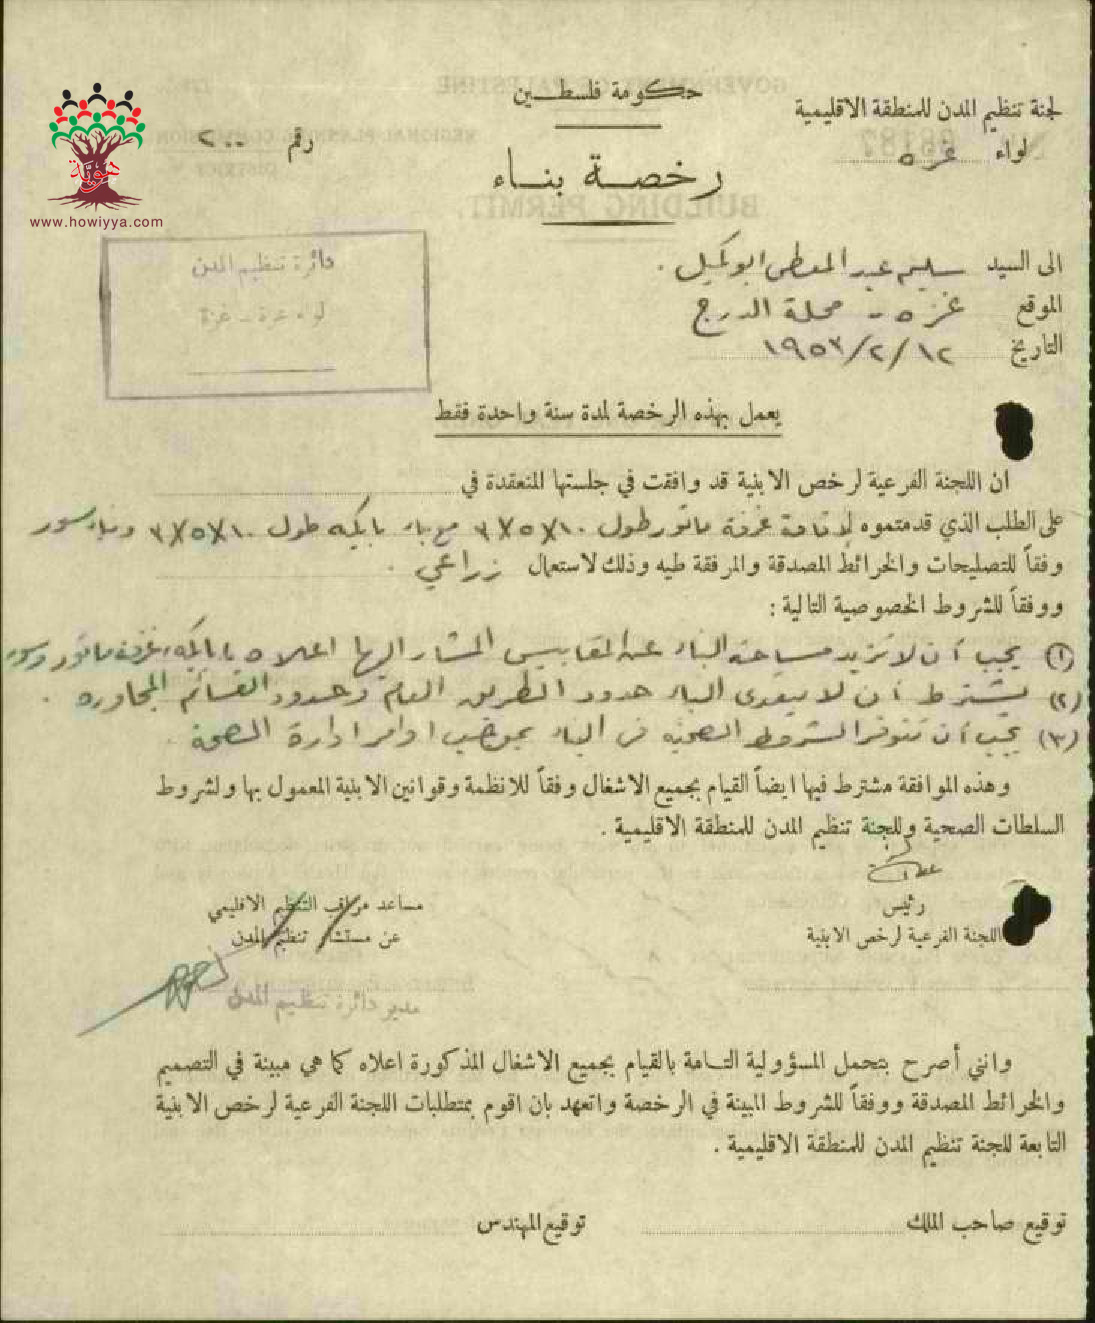 حكومة فلسطين
لجنة تنظيم المدن للمنطقة الاقليمية
لواء غزه
رقم ٢٠٠
رخصة بناء
هوية
www.howiyya.com
دائرة تنظيم المدن
لواء غزة - غزة
الى السيد سليم عبد المعطي ابو كميل .
الموقع غزه - محلة الدرج
التاريخ ١٩٥٣/٢/١٢
يعمل بهذه الرخصة لمدة سنة واحدة فقط
ان اللجنة الفرعية لرخص الابنية قد وافقت في جلستها المنعقدة في
على الطلب الذي قدمتموه لاقامة غرفة ماتور طول ١٠×٥×٣ مع بناء بايكه طول ١٠×٥×٣ وبناء سور
وفقاً للتصليحات والخرائط المصدقة والمرفقة طيه وذلك لاستعمال زراعي .
ووفقاً للشروط الخصوصية التالية :
(١) يجب أن لا تزيد مساحة البناء عن المقاييس المشار اليها اعلاه بايكه، غرفة ماتور وسور
(٢) يشترط أن لا يتعدى البناء حدود الطريق العام وحدود القسائم المجاوره .
(٣) يجب أن تتوفر الشروط الصحيه في البناء بموجب اوامر ادارة الصحة .
وهذه الموافقة مشترط فيها ايضاً القيام بجميع الاشغال وفقاً للانظمة وقوانين الابنية المعمول بها ولشروط
السلطات الصحية وللجنة تنظيم المدن للمنطقة الاقليمية .
رئيس
اللجنة الفرعية لرخص الابنية
مساعد مراقب التنظيم الاقليمي
عن مستشار تنظيم المدن
مدير دائرة تنظيم المدن
وانني أصرح بتحمل المسؤولية التامة بالقيام بجميع الاشغال المذكورة اعلاه كما هي مبينة في التصميم
والخرائط المصدقة ووفقاً للشروط المبينة في الرخصة واتعهد بان اقوم بمتطلبات اللجنة الفرعية لرخص الابنية
التابعة للجنة تنظيم المدن للمنطقة الاقليمية .
توقيع صاحب الملك
توقيع المهندس